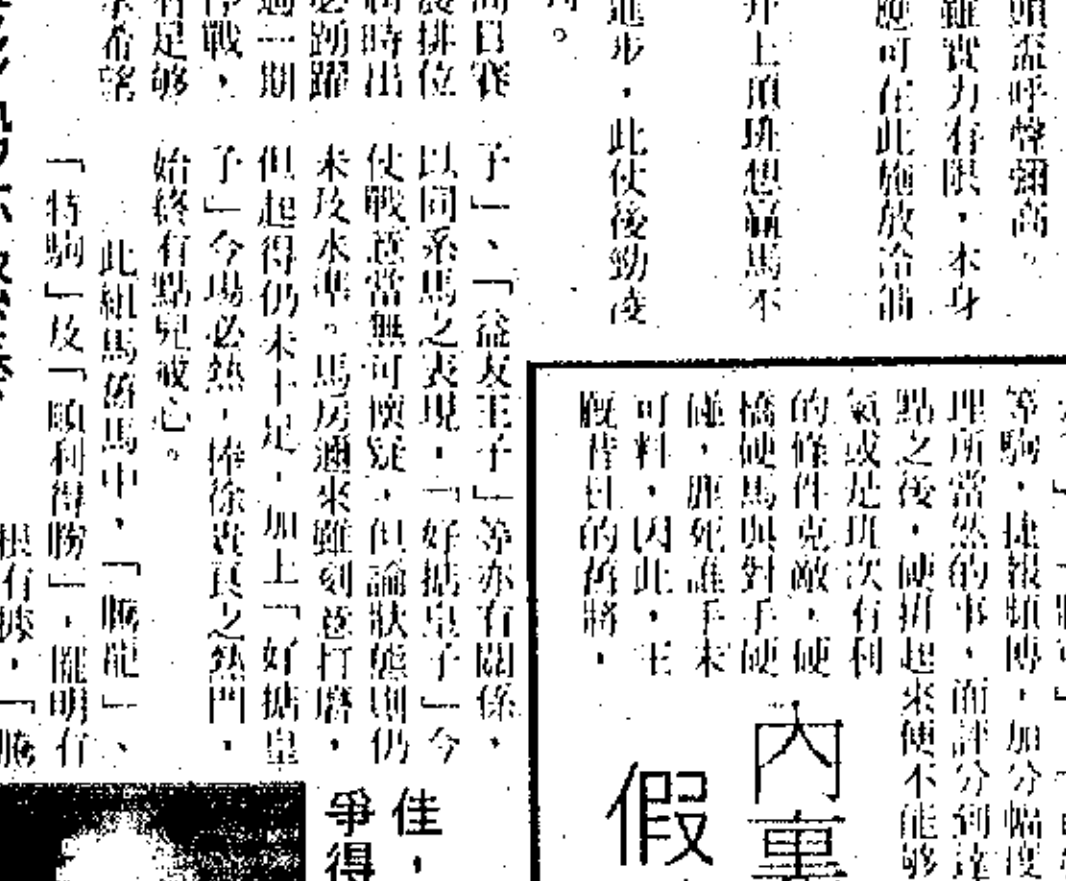 頭盃呼聲彌高。
雖實力有限，本身
應可在此施放冷箭
井上頂班想贏馬不
進步，此仗後勁凌
子」、「益友王子」等亦有關係，
以同系馬之表現，「好搪皇子」今
使戰意當無可懷疑，但論狀態則仍
未及水準。馬房邇來雖刻意打磨，
但起得仍未十足，加上「好搪皇
子」今場必熱，捧徐貴良之熱門，
始終有點兒戒心。
此組馬舊馬中，「騰龍」、
「特駒」及「順利得勝」，擺明有
等駒，捷報頻傳，加分幅度
理所當然的事，而評分到達
點之後，硬拼起來便不能夠
氣或是班次有利
的條件克敵，硬
橋硬馬與對手硬
碰，鹿死誰手未
可料，因此，王
廄昔日的舊將，
內裏
假
佳，
爭得